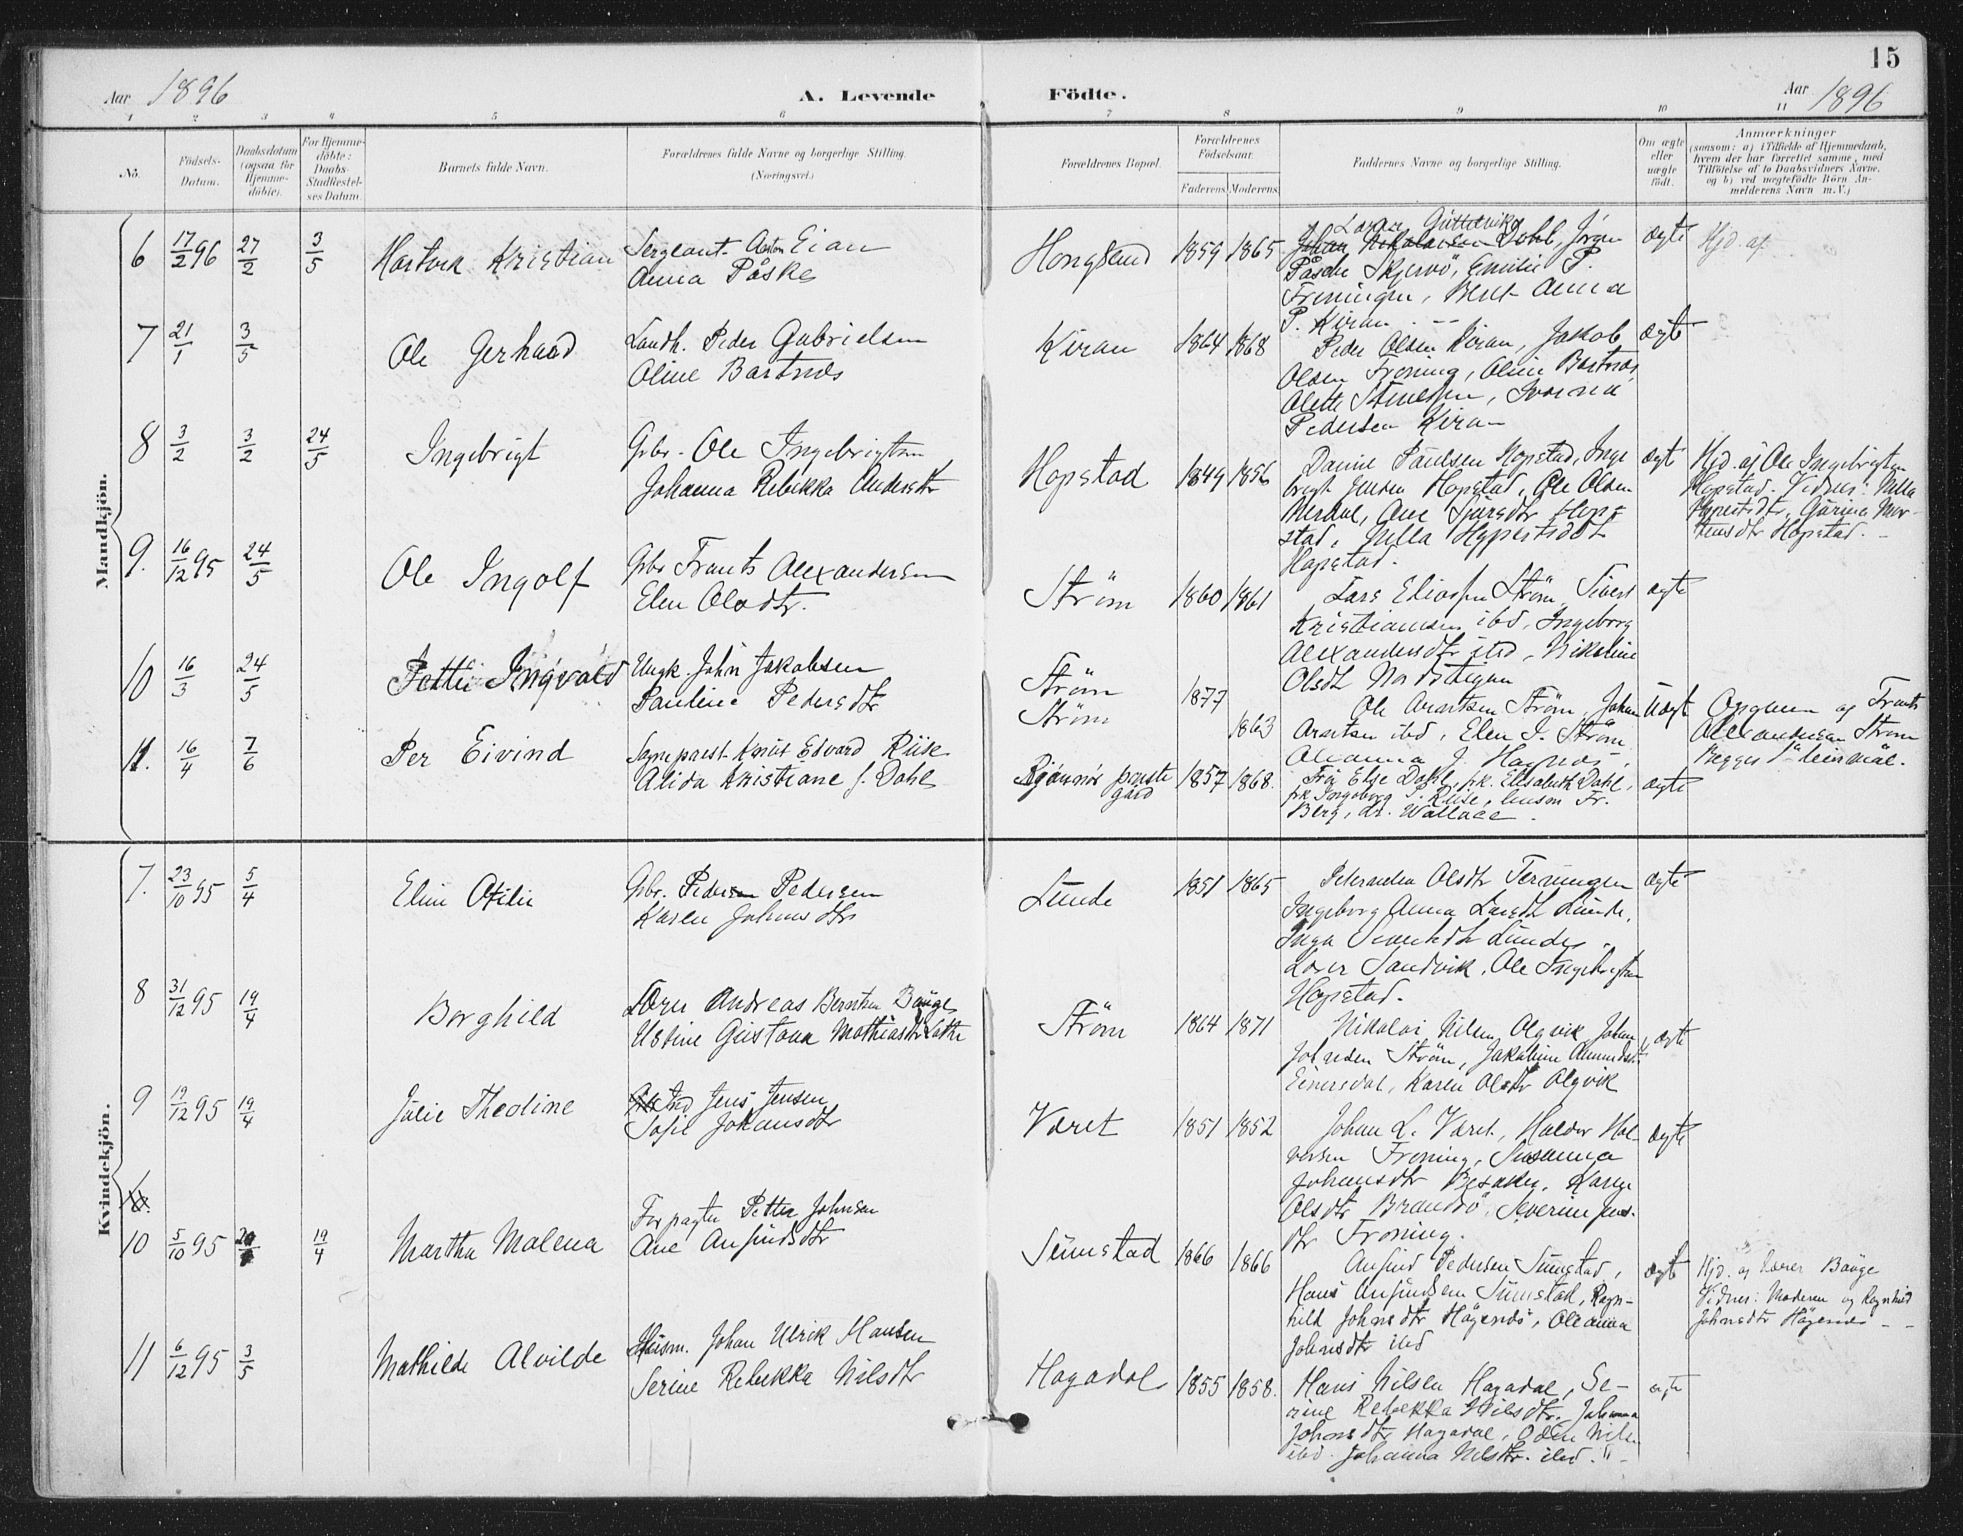 15
Aar 1896
A. Levende Födte.
Aar 1896
1 2 3 4 5 6 7 8 9 10 11
No.
Födsels-
Datum.
Daabsdatum
(ogsaa for
Hjemme-
döbte).
For Hjemme-
döbte:
Daabs-
Stadfæstel-
ses Datum.
Barnets fulde Navn.
Forældrenes fulde Navne og borgerlige Stilling.
(Næringsvei.)
Forældrenes Bopæl.
Forældrenes
Födselsaar.
Faderens Moderens
Faddernes Navne og borgerlige Stilling.
Om ægte
eller
uægte
födt.
Anmærkninger
(saasom: a) i Tilfælde af Hjemmedaab,
hvem der har forrettet samme, med
Tilföielse af to Daabsvidners Navne,
og b) ved uægtefödte Börn An-
melderens Navn m.V.)
Mandkjön.
6 17/2 96 27/2 3/5 Hartvik Kristian
Sergeant Anton Eian
Anna Påske
Hongsund 1859 1865
Dahl, Jörgen
Påske Skjervö, Emilie P.
Fröningen, Berit Anna
P. Kiran
ægte
Hjd. af
7 21/1 3/5 Ole Gerhard
Landh. Peder Gabrielsen
Oline Bartnes
Kiran 1864 1868
Peder Olsen Kiran, Jakob
Olsen Fröning, Oline Bartnes
Olette
Pedersen Kiran
ægt
8 3/2 3/2 24/5 Ingebrigt
Gbr. Ole Ingebrigtsen
Johanna Rebekka Andersdtr
Hopstad 1849 1856
Daniel Paulsen Hopstad, Inge
brigt Jensen Hopstad, Ole Olsen
Merdal, Ane Sjursdtr Hop-
stad,
Hopstad.
ægt
Hjd. af Ole Ingebrigtsen
Hopstad. Vidner:
Gurina Mor-
tensdtr Hopstad.
9. 16/12 95 24/5 Ole Ingolf
Gbr Frants Alexandersen
Elen Olsdtr.
Ström 1860 1861
Lars Eliassen Ström, Sivert
Kristiansen ibd, Ingeborg
Alexandersdtr ibd, Nikoline
Olsdtr Nordstigen
ægte
10 16/3 24/5 Petter Ingvald
Ungk. John Jakobsen
Pauline Pedersdtr
Ström
Ström
1877
1863
Ole Arntsen Ström, Johan
Arntsen ibd, Elen J. Ström
Oleanna J. Hopnes
Uægt
Opgiven af Frants
Alexandersen Ström
Begges 1ste leiermål.
11. 16/4 7/6 Per Eivind
Sognepræst Knut Edvard Riise
Alida Kristiane f. Dahl
Björnör præste
gård
1857 1868.
Fru Else Dahl, frk. Elisabeth Dahl,
frk Ingeborg P. Riise, Fr.
Berg, dr. Wallace.
ægte
Kvindekjön.
7. 23/10 95 5/4 Elen Otilie
Gbr. Peder Pedersen
Karen Johansdtr
Lunde 1851 1865
Olsdtr Terningen
Ingeborg Anna Larsdtr Lunde,
Inga Sivertsdtr Lunde
Lorer Sandvik, Ole Ingebrigtsen
Hopstad.
ægte
8 31/12 95 19/4 Borghild
Lærer Andreas Berntsen Bauge
Ustine Gustava Mathiasdtr
Ström 1864 1871
Nikolai Nilsen Olqvik, Johan
Johnsen Ström, Jakobine Amundsdtr
Einersdal, Karen Olsdtr Olqvik
ægte
9 19/12 95 19/4 Julie Theoline
Jens Jensen
Sofie Johansdtr
Været 1851 1852
Johan L. Været, Haldor Hal-
vorsen Fröning, Susanna
Johansdtr Besaker, Karen
Olsdtr Brandsö, Severine Jens-
dtr Fröning.
ægte
10 5/10 95 19/4 Martha Malena
Forpagter Petter Johnsen
Ane Anfindsdtr
Sumstad 1866 1866
Anfind Pedersen Sumstad,
Hans Anfindsen Sumstad, Ragn-
hild Johnsdtr Högenös, Oleanna
Johnsdtr ibd
ægt
Hjd. af Lærer Bauge
Vidner: Moderen og Ragnhild
Johnsdtr
11 6/12 95 3/5 Mathilde Alvilde
Husm. Johan Ulrik Hansen
Serine Rebekka Nilsdtr
Hagadal 1855 1858.
Hans Nilsen Hagadal, Se-
rine Rebekka Nilsdtr. Johanna
Johnsdtr Hagadal, Odin Nilsen
ibd. Johanna Nilsdtr. ibd.
ægte